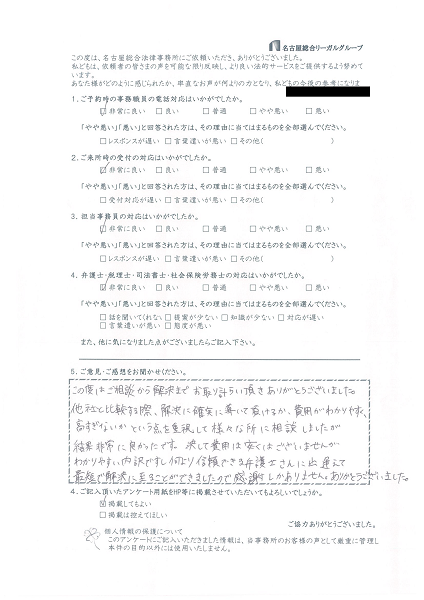 名古屋総合リーガルグループ
この度は、名古屋総合法律事務所にご依頼いただき、ありがとうございました。
私どもは、依頼者の皆さまの声を可能な限り反映し、より良い法的サービスをご提供するよう努めて
います。
あなた様がどのように感じられたか、率直なお声が何よりの力となり、私どもの今後の参考になりま
1．ご予約時の事務職員の電話対応はいかがでしたか。
☑非常に良い □良い □普通 □やや悪い □悪い
「やや悪い」「悪い」と回答された方は、その理由に当てはまるものを全部選んでください。
□レスポンスが遅い □言葉遣いが悪い □その他( )
2．ご来所時の受付の対応はいかがでしたか。
☑非常に良い □良い □普通 □やや悪い □悪い
「やや悪い」「悪い」と回答された方は、その理由に当てはまるものを全部選んでください。
□受付対応が遅い □言葉遣いが悪い □その他( )
3．担当事務員の対応はいかがでしたか。
☑非常に良い □良い □普通 □やや悪い □悪い
「やや悪い」「悪い」と回答された方は、その理由に当てはまるものを全部選んでください。
□レスポンスが遅い □言葉遣いが悪い □その他( )
4．弁護士・税理士・司法書士・社会保険労務士の対応はいかがでしたか。
☑非常に良い □良い □普通 □やや悪い □悪い
「やや悪い」「悪い」と回答された方は、その理由に当てはまるものを全部選んでください。
□話を聞いてくれない □提案が少ない □知識が少ない □対応が遅い
□言葉遣いが悪い □態度が悪い
また、他に気になりました点がございましたらご記入下さい。
5．ご意見・ご感想をお聞かせください。
この度はご相談から解決まで お取り計らい頂き ありがとうございました。
他社と比較する際、解決に確実に導いて頂けるか、費用がわかりやすく、
高すぎないかという点を重視して 様々な所に相談しましたが
結果非常に良かったです。決して費用は安くはございませんが
わかりやすい内訳ですし何より信頼できる弁護士さんに出逢えて
最短で解決に至ることができましたので感謝しかありません。ありがとうございました。
4．ご記入頂いたアンケート用紙をHP等に掲載させていただいてもよろしいでしょうか。
☑掲載してもよい
□掲載は控えてほしい
ご協力ありがとうございました。
個人情報の保護について
このアンケートにご記入いただきました情報は、当事務所のお客様の声として厳重に管理し
本件の目的以外には使用いたしません。